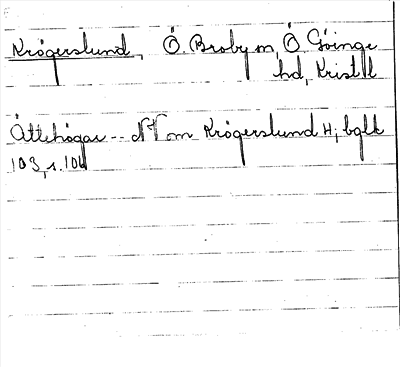 Krögerslund, Ö. Broby sn, Ö. Göinge
hd, Krist. l
Ättehögar -- NV om Krögerslund H, bglk
103, s. 104